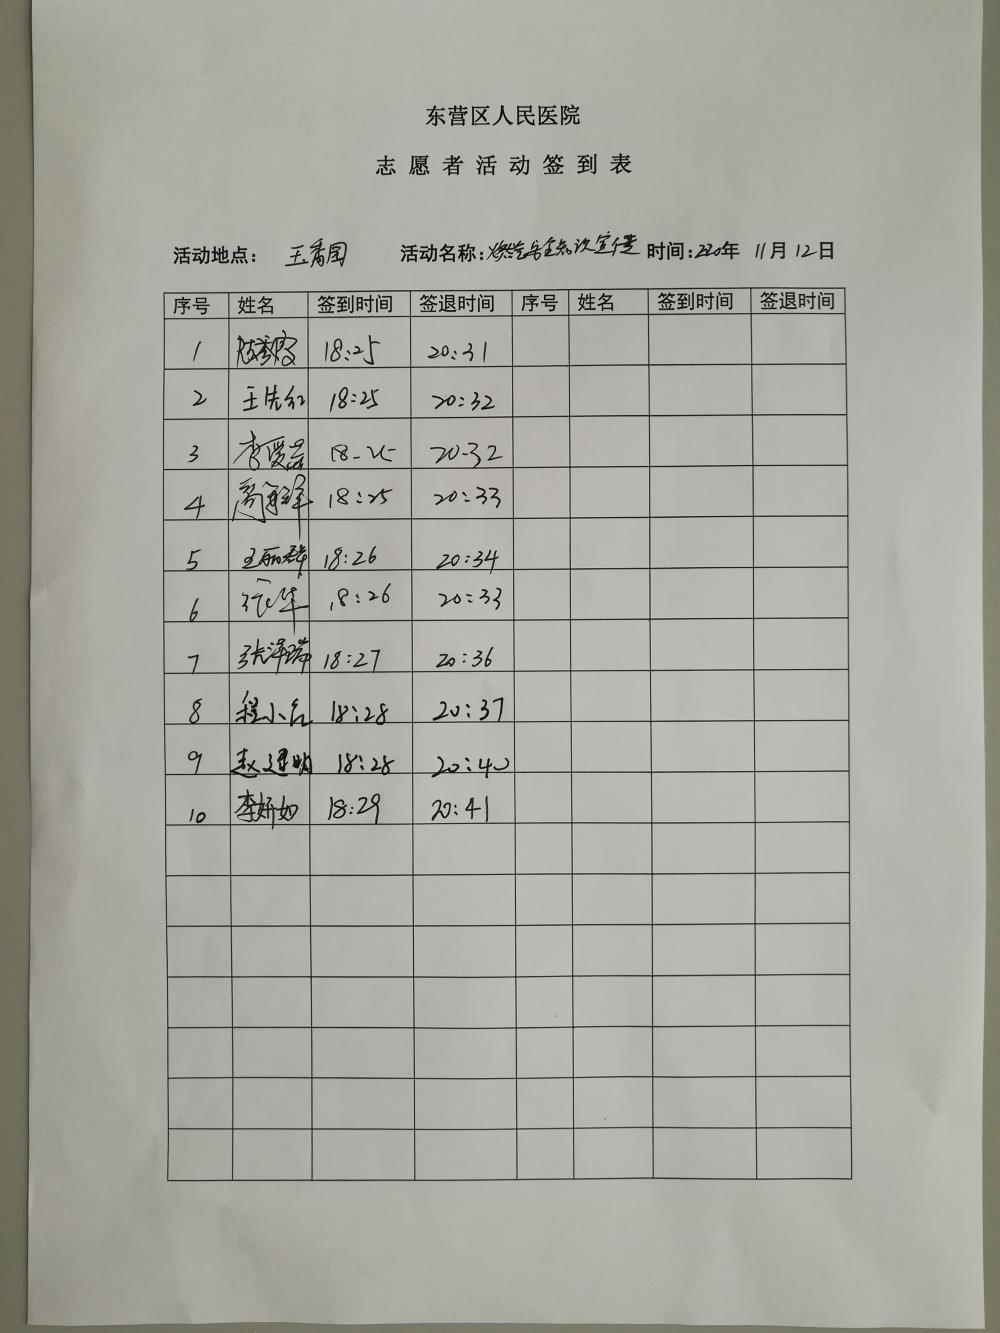 东营区人民医院
志愿者活动签到表
活动地点: 玉香园 活动名称: 燃气安全知识宣传 时间: 2020年 11月 12日
序号 姓名 签到时间 签退时间 序号 姓名 签到时间 签退时间
1 18:25 20:31
2 18:25 20:32
3 李爱 18-25 20-32
4 18:25 20:33
5 王丽群 18:26 20:34
6 18:26 20:33
7 张泽瑞 18:27 20:36
8 程小 18:28 20:37
9 赵建明 18:28 20:40
10 李妍如 18:29 20:41